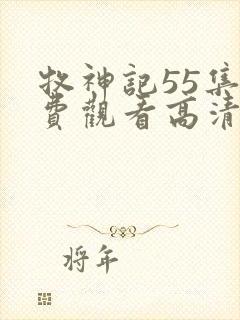 牧神記55集
費觀看高清
将年